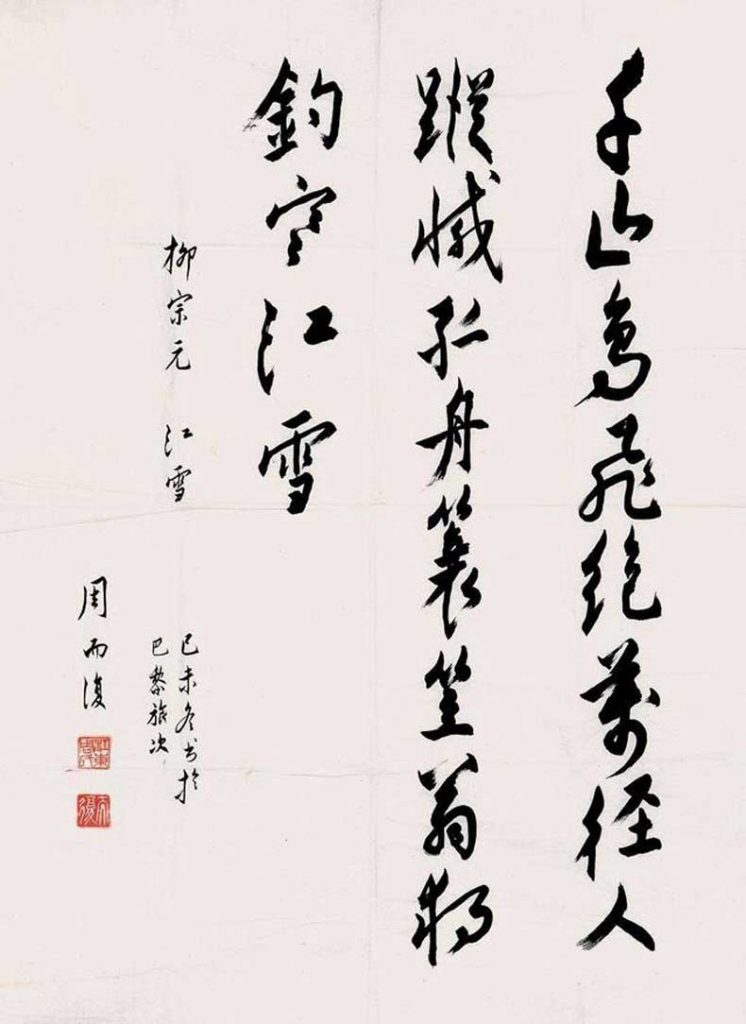 千山鸟飞绝万径人
蹤滅孤舟蓑笠翁独
釣寒江雪
柳宗元 江雪
己未冬书於
巴黎旅次
周而復